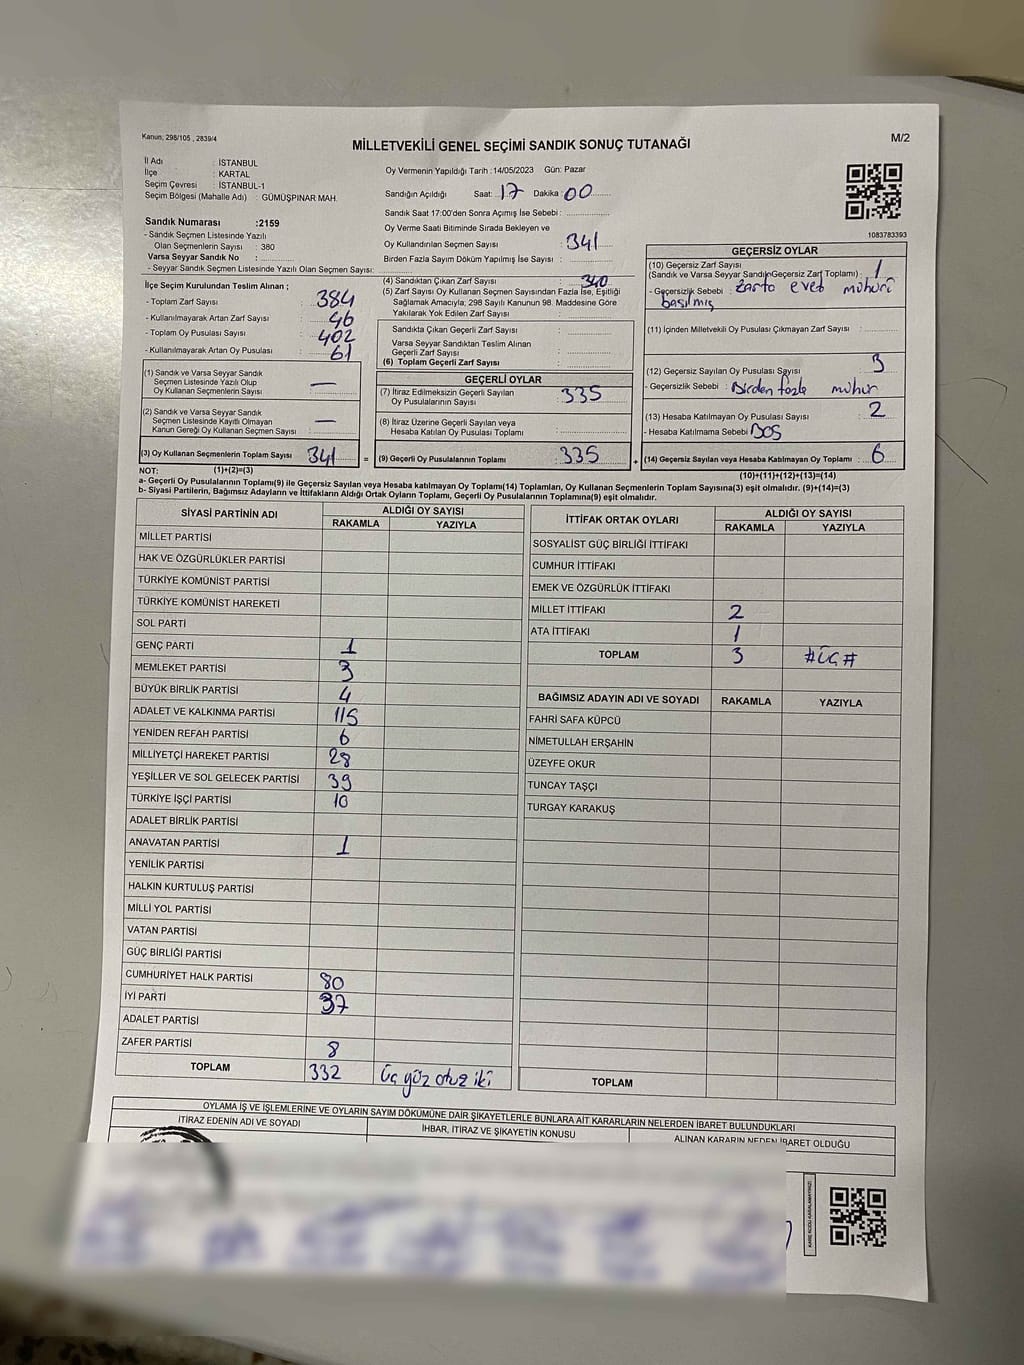 Kanun; 298/105 , 2839/4
MİLLETVEKİLİ GENEL SEÇİMİ SANDIK SONUÇ TUTANAĞI
M/2
İl Adı : İSTANBUL
İlçe : KARTAL
Seçim Çevresi : İSTANBUL-1
Seçim Bölgesi (Mahalle Adı) : GÜMÜŞPINAR MAH.
Sandık Numarası :2159
- Sandık Seçmen Listesinde Yazılı
Olan Seçmenlerin Sayısı : 380
Varsa Seyyar Sandık No :
- Seyyar Sandık Seçmen Listesinde Yazılı Olan Seçmen Sayısı:
İlçe Seçim Kurulundan Teslim Alınan ;
- Toplam Zarf Sayısı : 384
- Kullanılmayarak Artan Zarf Sayısı : 46
- Toplam Oy Pusulası Sayısı : 402
- Kullanılmayarak Artan Oy Pusulası : 61
(1) Sandık ve Varsa Seyyar Sandık
Seçmen Listesinde Yazılı Olup
Oy Kullanan Seçmenlerin Sayısı : —
(2) Sandık ve Varsa Seyyar Sandık
Seçmen Listesinde Kayıtlı Olmayan
Kanun Gereği Oy Kullanan Seçmen Sayısı : —
(3) Oy Kullanan Seçmenlerin Toplam Sayısı : 341
Oy Vermenin Yapıldığı Tarih :14/05/2023 Gün: Pazar
Sandığın Açıldığı Saat: 17 Dakika : 00
Sandık Saat 17:00'den Sonra Açımış İse Sebebi :
Oy Verme Saati Bitiminde Sırada Bekleyen ve
Oy Kullandırılan Seçmen Sayısı : 341
Birden Fazla Sayım Döküm Yapılmış İse Sayısı :
(4) Sandıktan Çıkan Zarf Sayısı : 340
(5) Zarf Sayısı Oy Kullanan Seçmen Sayısından Fazla İse, Eşitliği
Sağlamak Amacıyla, 298 Sayılı Kanunun 98. Maddesine Göre
Yakılarak Yok Edilen Zarf Sayısı
Sandıkta Çıkan Geçerli Zarf Sayısı :
Varsa Seyyar Sandıktan Teslim Alınan
Geçerli Zarf Sayısı :
(6) Toplam Geçerli Zarf Sayısı :
GEÇERLİ OYLAR
(7) İtiraz Edilmeksizin Geçerli Sayılan
Oy Pusulalarının Sayısı : 335
(8) İtiraz Üzerine Geçerli Sayılan veya
Hesaba Katılan Oy Pusulası Toplamı :
= (9) Geçerli Oy Pusulalarının Toplamı : 335 +
1083783393
GEÇERSİZ OYLAR
(10) Geçersiz Zarf Sayısı
(Sandık ve Varsa Seyyar Sandığın Geçersiz Zarf Toplamı) : 1
- Geçersizlik Sebebi : zarfa evet mühürü
basılmış
(11) İçinden Milletvekili Oy Pusulası Çıkmayan Zarf Sayısı :
(12) Geçersiz Sayılan Oy Pusulası Sayısı : 3
- Geçersizlik Sebebi : Birden fazla mühür
(13) Hesaba Katılmayan Oy Pusulası Sayısı : 2
- Hesaba Katılmama Sebebi : BOŞ
(14) Geçersiz Sayılan veya Hesaba Katılmayan Oy Toplamı : 6
NOT: (1)+(2)=(3)
(10)+(11)+(12)+(13)=(14)
a- Geçerli Oy Pusulalarının Toplamı(9) ile Geçersiz Sayılan veya Hesaba Katılmayan Oy Toplamı(14) Toplamları, Oy Kullanan Seçmenlerin Toplam Sayısına(3) eşit olmalıdır. (9)+(14)=(3)
b- Siyasi Partilerin, Bağımsız Adayların ve İttifakların Aldığı Ortak Oyların Toplamı, Geçerli Oy Pusulalarının Toplamına(9) eşit olmalıdır.
SİYASİ PARTİNİN ADI ALDIĞI OY SAYISI
RAKAMLA YAZIYLA
MİLLET PARTİSİ
HAK VE ÖZGÜRLÜKLER PARTİSİ
TÜRKİYE KOMÜNİST PARTİSİ
TÜRKİYE KOMÜNİST HAREKETİ
SOL PARTİ
GENÇ PARTİ 1
MEMLEKET PARTİSİ 3
BÜYÜK BİRLİK PARTİSİ 4
ADALET VE KALKINMA PARTİSİ 115
YENİDEN REFAH PARTİSİ 6
MİLLİYETÇİ HAREKET PARTİSİ 28
YEŞİLLER VE SOL GELECEK PARTİSİ 39
TÜRKİYE İŞÇİ PARTİSİ 10
ADALET BİRLİK PARTİSİ
ANAVATAN PARTİSİ 1
YENİLİK PARTİSİ
HALKIN KURTULUŞ PARTİSİ
MİLLİ YOL PARTİSİ
VATAN PARTİSİ
GÜÇ BİRLİĞİ PARTİSİ
CUMHURİYET HALK PARTİSİ 80
İYİ PARTİ 37
ADALET PARTİSİ
ZAFER PARTİSİ 8
TOPLAM 332 Üç yüz otuz iki
İTTİFAK ORTAK OYLARI ALDIĞI OY SAYISI
RAKAMLA YAZIYLA
SOSYALİST GÜÇ BİRLİĞİ İTTİFAKI
CUMHUR İTTİFAKI
EMEK VE ÖZGÜRLÜK İTTİFAKI
MİLLET İTTİFAKI 2
ATA İTTİFAKI 1
TOPLAM 3 #ÜÇ#
BAĞIMSIZ ADAYIN ADI VE SOYADI RAKAMLA YAZIYLA
FAHRİ SAFA KÜPCÜ
NİMETULLAH ERŞAHİN
ÜZEYFE OKUR
TUNCAY TAŞÇI
TURGAY KARAKUŞ
TOPLAM
OYLAMA İŞ VE İŞLEMLERİNE VE OYLARIN SAYIM DÖKÜMÜNE DAİR ŞİKAYETLERLE BUNLARA AİT KARARLARIN NELERDEN İBARET BULUNDUKLARI
İTİRAZ EDENİN ADI VE SOYADI İHBAR, İTİRAZ VE ŞİKAYETİN KONUSU ALINAN KARARIN NEDEN İBARET OLDUĞU
KARE KODU KARALAMAYINIZ!